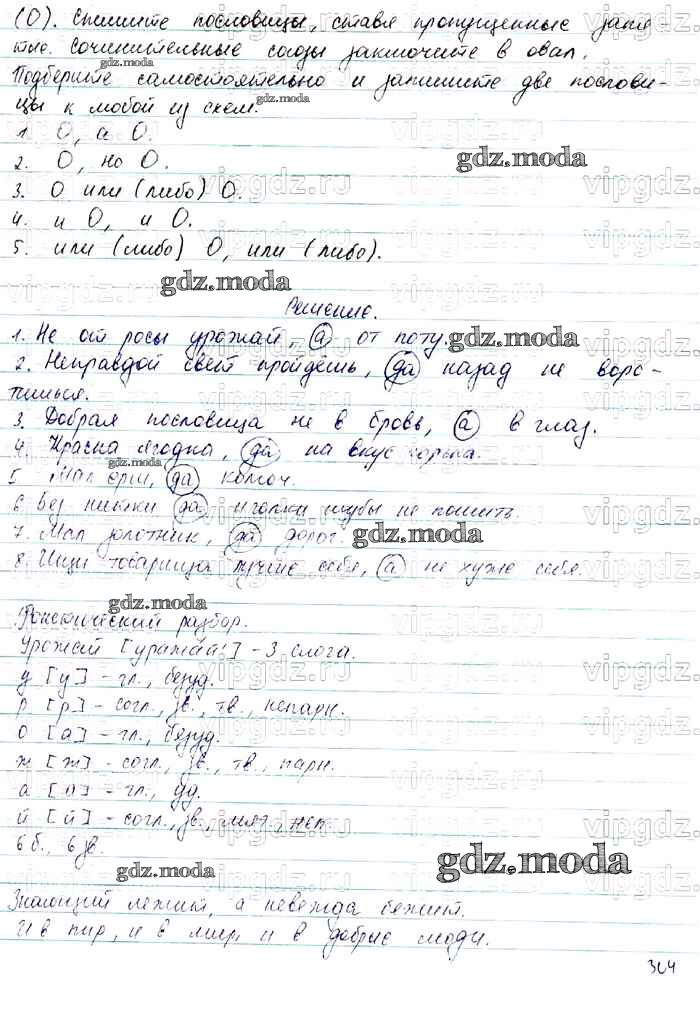 (О). Спишите пословицы, ставя пропущенные запя-
тые. Сочинительные союзы заключите в овал.
Подберите самостоятельно и запишите две послови-
цы к любой из схем.
1. О, а О.
2. О, но О.
3. О или (либо) О.
4. и О, и О.
5. или (либо) О, или (либо).
Решение.
1. Не от росы урожай, а от поту.
2. Неправдой свет пройдёшь, да назад не воро-
тишься.
3. Добрая пословица не в бровь, а в глаз.
4. Красна ягодка, да на вкус горька.
5. Мал ёрш, да колюч.
6. Без нитки да иголки шубы не пошить.
7. Мал золотник, да дорог.
8. Ищи товарища лучше себя, а не хуже себя.
Фонетический разбор.
Урожай [уражай'] - 3 слога.
у [у] - гл., безуд.
р [р] - согл., зв., тв., непарн.
о [а] - гл., безуд.
ж [ж] - согл., зв., тв., парн.
а [а] - гл., уд.
й [й] - согл., зв., мяг., неп.
6 б., 6 зв.
Знающий лежит, а невежда бежит.
И в пир, и в мир, и в добрые люди.
304
gdz.moda
vipgdz.ru